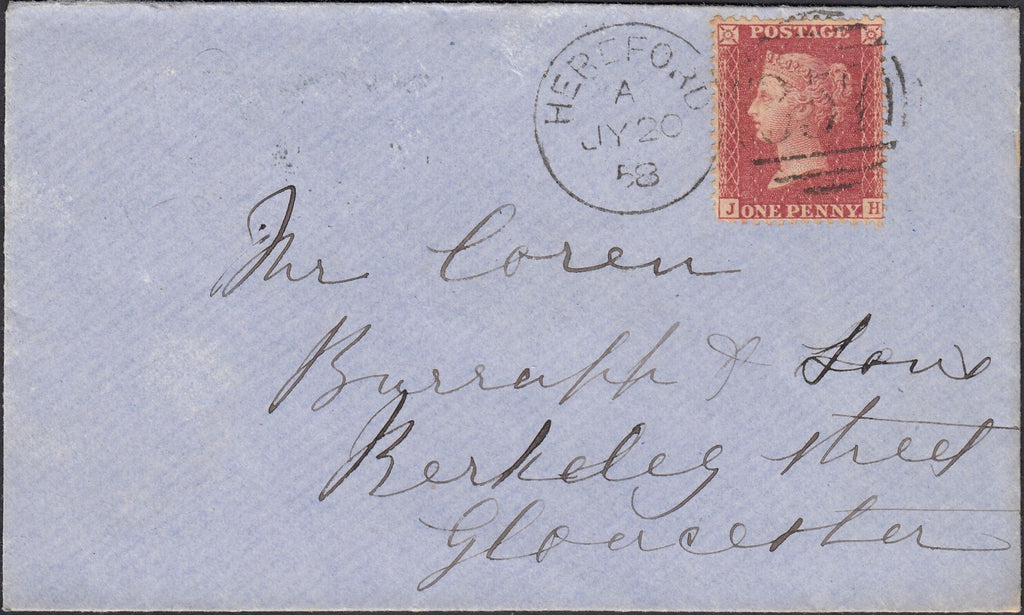 HEREFORD
A
JY 20
58
POSTAGE
J ONE PENNY H
Mr Coren
Burrapp & Sons
Berkeley Street
Gloucester